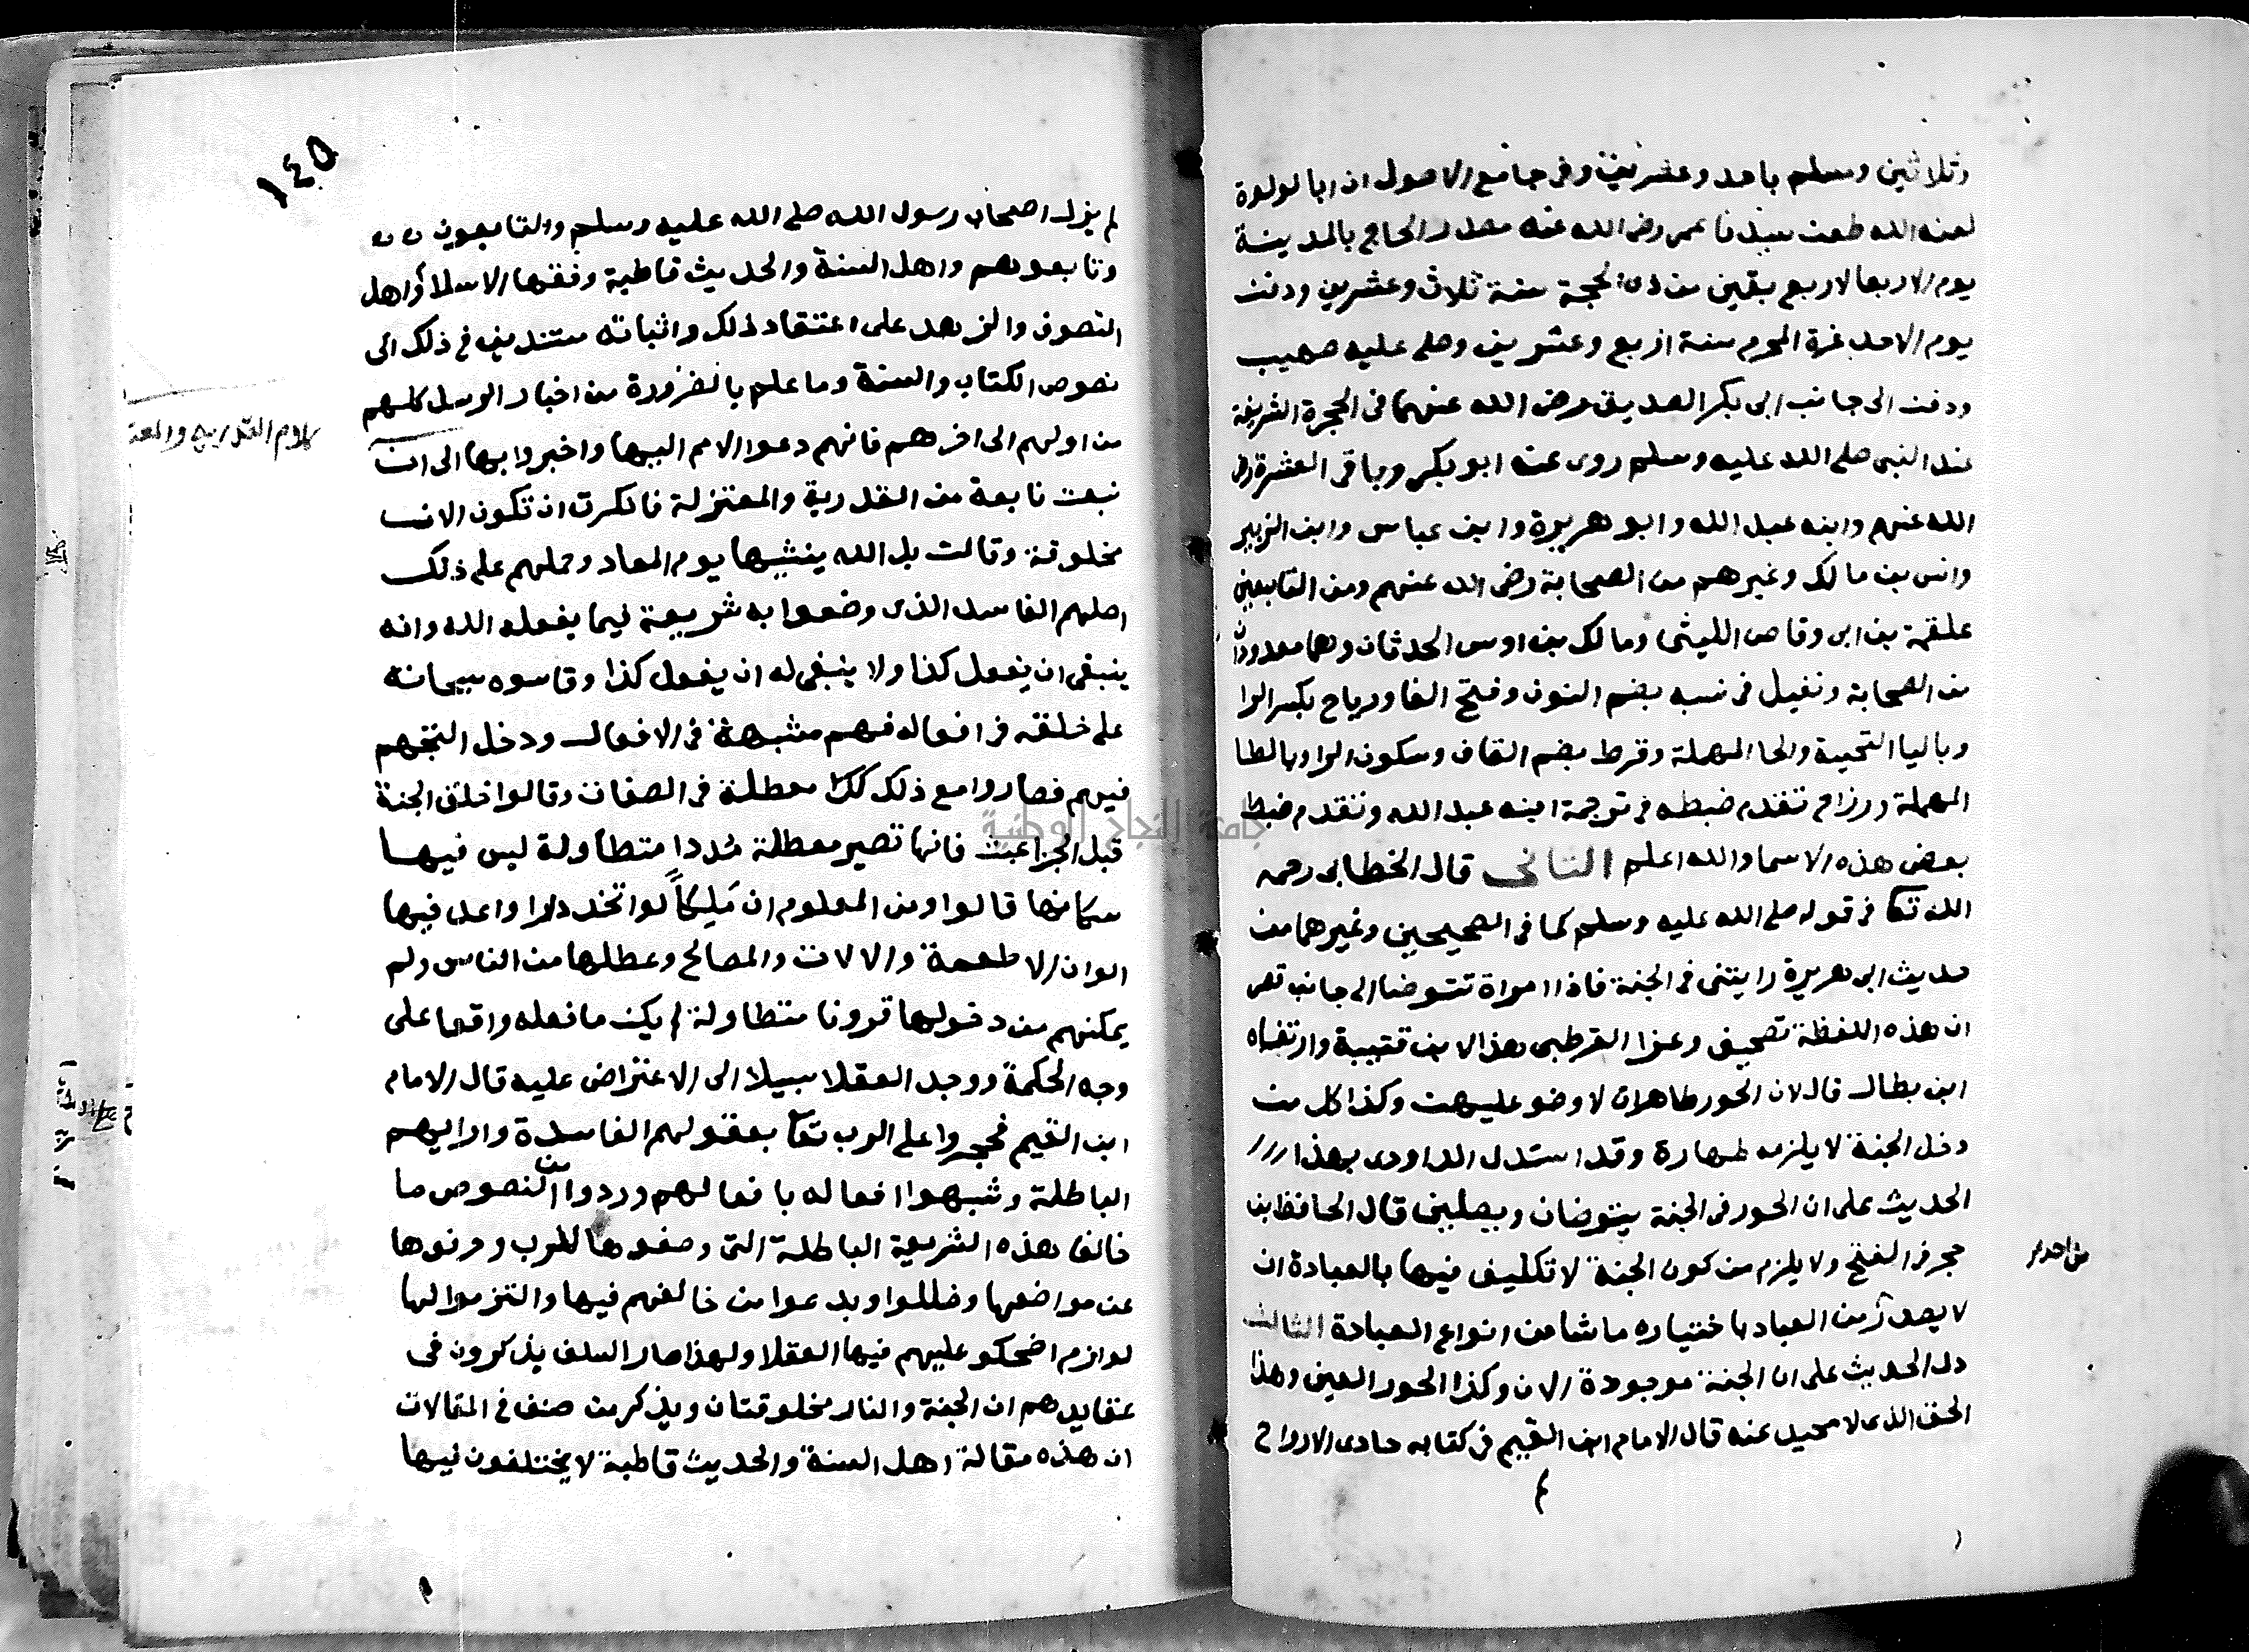 وثلاثين ومسلم باحد وعشرين وفي جامع الاصول ان ابا لولوة
لعنه الله طعن سيدنا عمر رضي الله عنه مصدر الحاج بالمدينة
يوم الاربعا لاربع بقين من ذي الحجة سنة ثلاث وعشرين ودفن
يوم الاحد غرة المحرم سنة اربع وعشرين وصلى عليه صهيب
ودفن الى جانب ابي بكر الصديق رضي الله عنهما في الحجرة الشريفة
عند النبي صلى الله عليه وسلم روى عنه ابو بكر وباقي العشرة رضي
الله عنهم وابنه عبد الله وابو هريرة وابن عباس وابن الزبير
وانس بن مالك وغيرهم من الصحابة رضي الله عنهم ومن التابعين
علقمة بن ابي وقاص الليثي ومالك بن اوس الحدثان وهما معدودان
من الصحابة ونفيل في نسبه بضم النون وفتح الفا ورياح بكسر الرا
وباليا التحتية والحا المهملة وقرط بضم القاف وسكون الرا وبالطا
المهملة ورزاح تقدم ضبطه في ترجمة ابنه عبد الله وتقدم ضبط
بعض هذه الاسما والله اعلم الثاني قال الخطابي رحمه
الله تعا في قوله صلى الله عليه وسلم كما في الصحيحين وغيرهما من
حديث ابي هريرة رايتني في الجنة فاذا امراة تتوضا الى جانب قصر
ان هذه اللفظة تصحيف وعزا القرطبي هذا لابن قتيبة وارتضاه
ابن بطال قال لان الحور طاهرات لا وضو عليهن وكذا كل من
دخل الجنة لا يلزمه طهارة وقد استدل الداودي بهذا
الحديث على ان الحور في الجنة يتوضان ويصلين قال الحافظ بن
حجر في الفتح ولا يلزم من كون الجنة لا تكليف فيها بالعبادة ان
لا يصدر من العباد باختياره ما شا من انواع العبادة الثالث
دل الحديث على ان الجنة موجودة الان وكذا الحور العين وهذا
الحق الذي لا محيد عنه قال الامام ابن القيم في كتابه حادي الارواح
١٤٥
لم يزل اصحاب رسول الله صلى الله عليه وسلم والتابعون
وتابعوهم واهل السنة والحديث قاطبة وفقها الاسلام واهل
التصوف والزهد على اعتقاد ذلك واثباته مستندين في ذلك الى
نصوص الكتاب والسنة وما علم بالضرورة من اخبار الرسل كلهم
من اولهم الى اخرهم فانهم دعوا الامم اليها واخبروا بها الى ان
كلام القدرية والمعتز
نبعت نابعة من القدرية والمعتزلة فانكرت ان تكون الان
مخلوقة وقالت بل الله ينشيها يوم المعاد وحملهم على ذلك
اصلهم الفاسد الذي وضعوا به شريعة ليما يفعله الله وانه
ينبغي ان يفعل كذا ولا ينبغي له ان يفعل كذا وقاسوه سبحانه
على خلقه في افعاله فهم مشبهة في الافعال ودخل التجهم
فيهم فصاروا مع ذلك معطلة في الصفات وقالوا خلق الجنة
قبل الجزا عبث فانها تصير معطلة مددا متطاولة ليس فيها
سكانها قالوا ومن المعلوم ان مَلِكاً لو اتخذ دارا واعد فيها
الوان الاطعمة والالات والمصالح وعطلها من الناس ولم
يمكنهم من دخولها قرونا متطاولة لم يكن ما فعله واقعا على
وجه الحكمة ووجد العقلا سبيلا الى الاعتراض عليه قال الامام
ابن القيم فحجروا على الرب تعا بعقولهم الفاسدة وارايهم
الباطلة وشبهوا افعاله بافعالهم وردوا من النصوص ما
خالف هذه الشريعة الباطلة التي وضعوها للرب وحرفوها
عن مواضعها وضللوا وبدعوا من خالفهم فيها والتزموا لها
لوازم اضحكو عليهم فيها العقلا ولهذا صار السلف يذكرون في
عقايدهم ان الجنة والنار مخلوقتان ويذكر من صنف في المقالات
ان هذه مقالة اهل السنة والحديث قاطبة لا يختلفون فيها
جامعة النجاح الوطنية